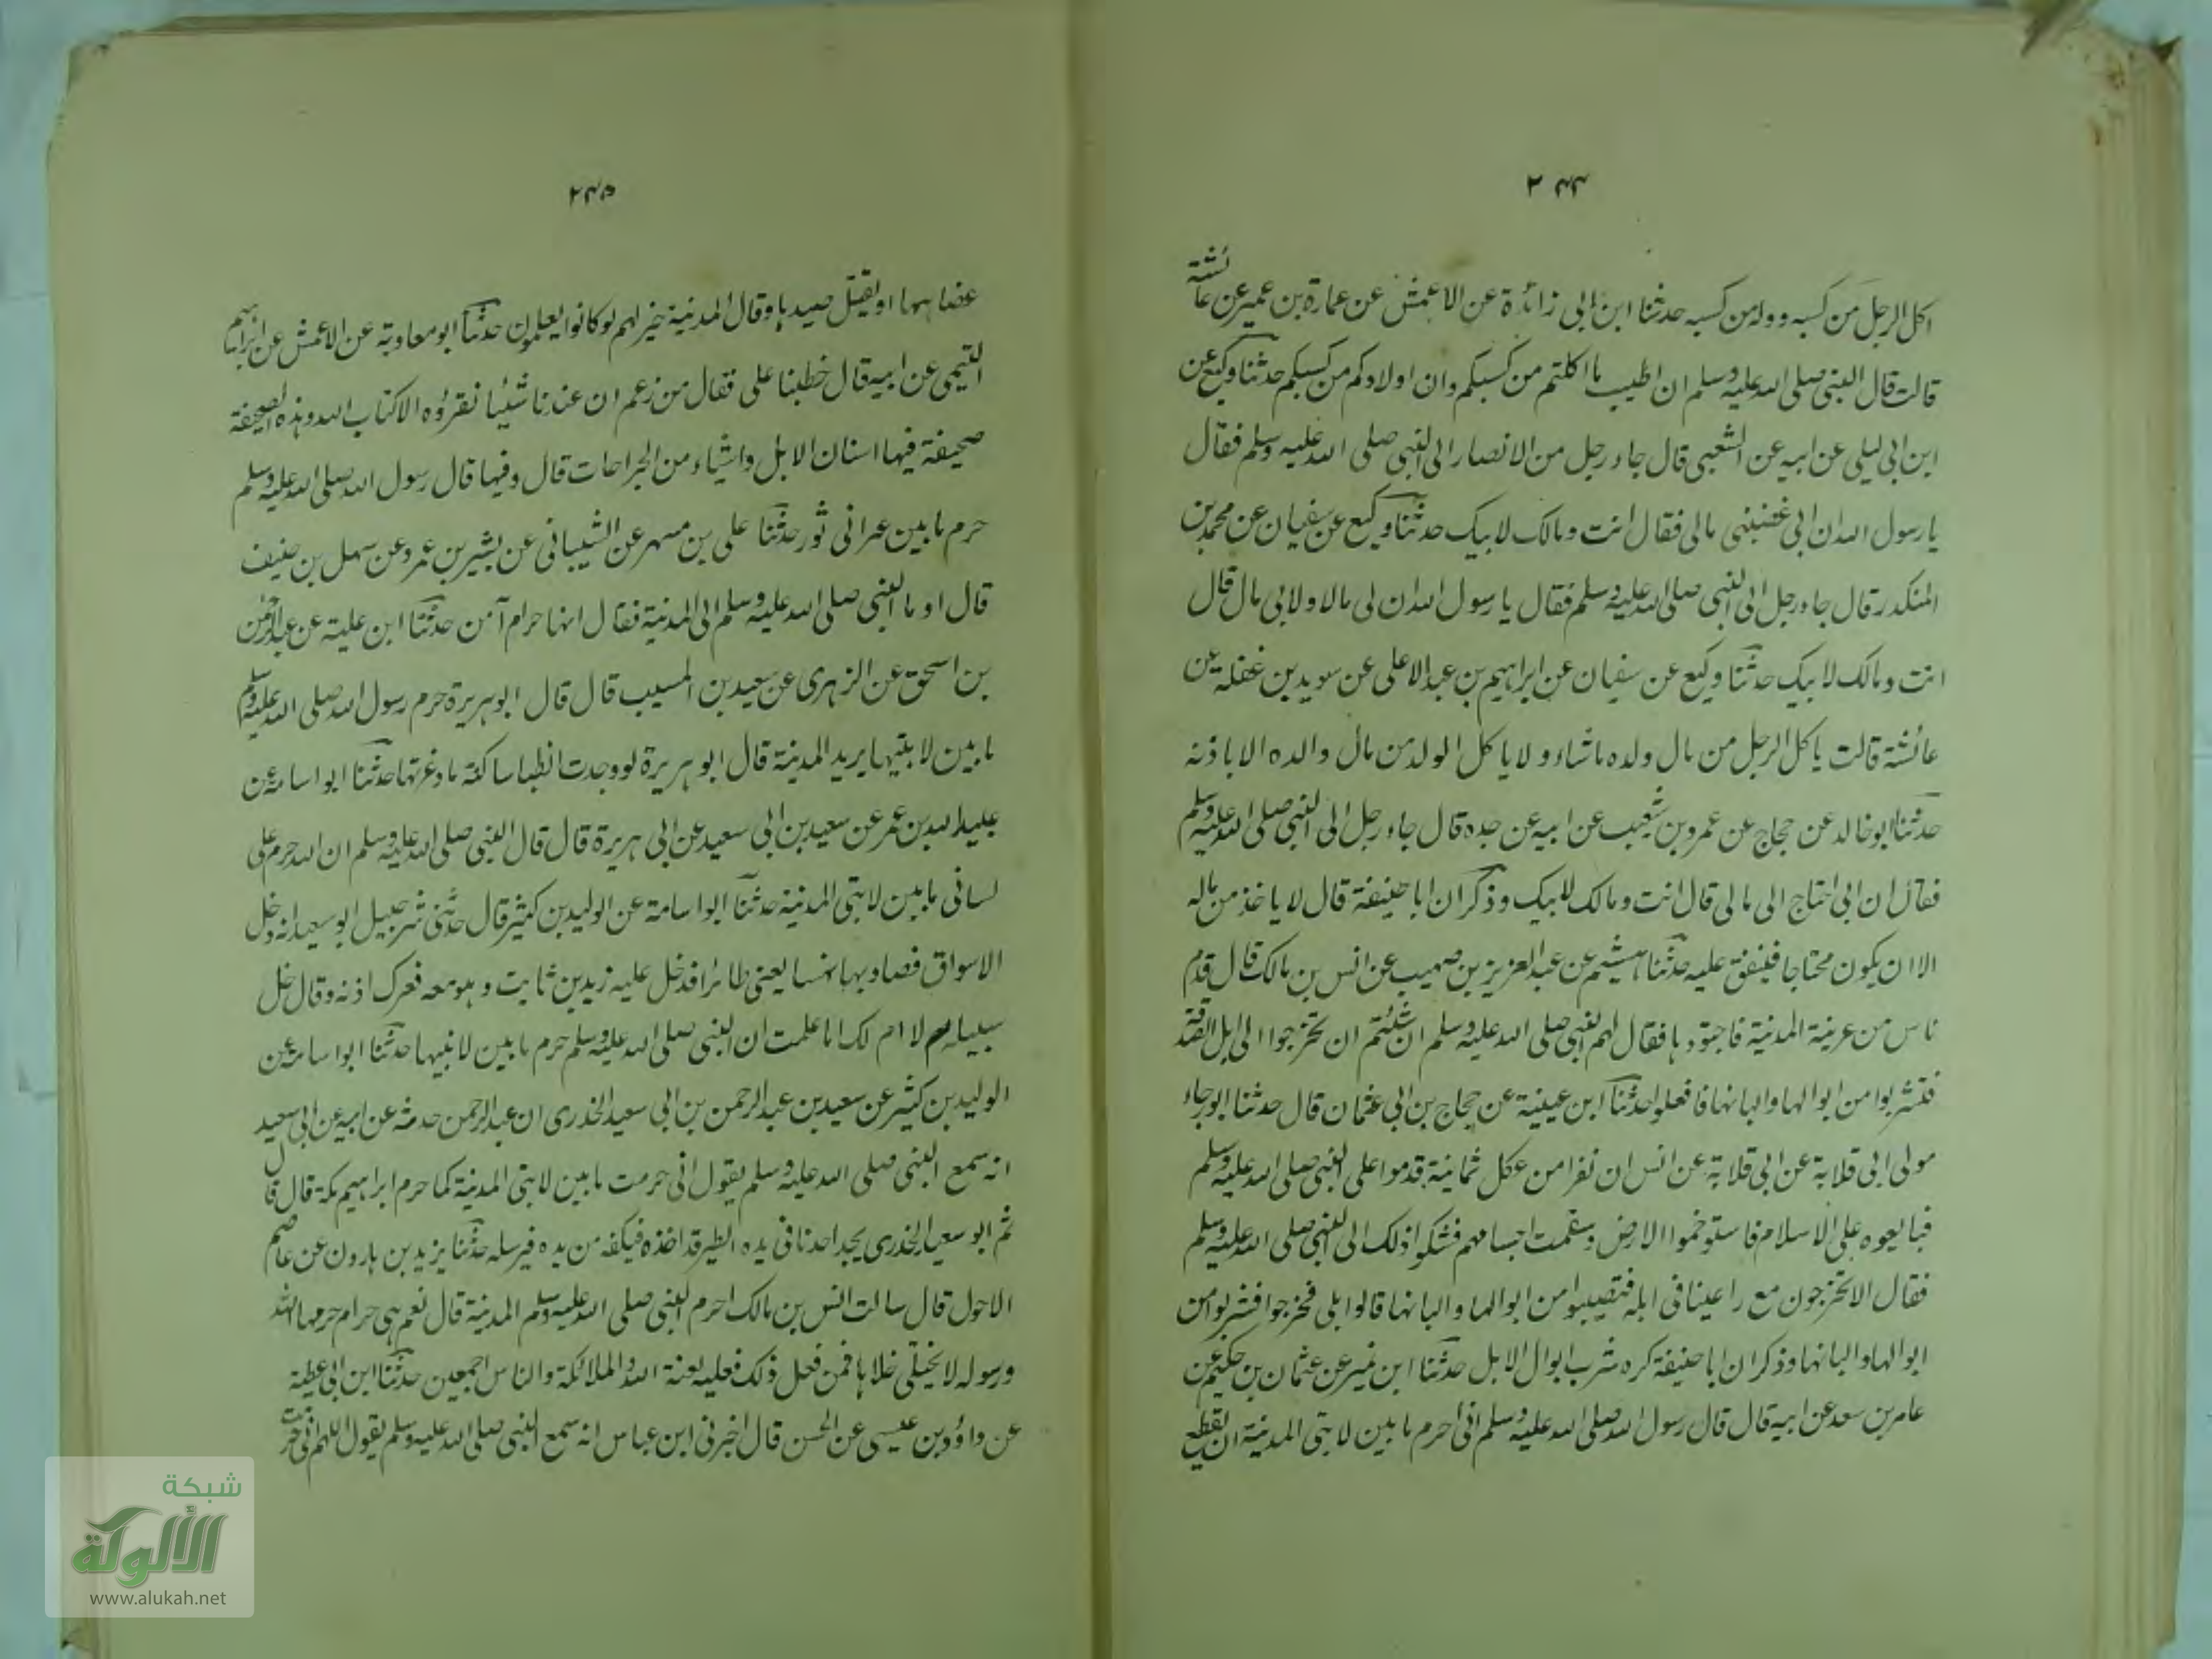 ٢٤٤
اكل الرجل من كسبه وولده من كسبه حدثنا ابن ابى زائدة عن الاعمش عن عمارة بن عمير عن عائشة
قالت قال النبى صلى الله عليه وسلم ان اطيب ما اكلتم من كسبكم وان اولادكم من كسبكم حدثنا وكيع عن
ابن ابى ليلى عن ابيه عن الشعبى قال جاء رجل من الانصار الى النبى صلى الله عليه وسلم فقال
يا رسول الله ان ابى غصبنى مالى فقال انت ومالك لابيك حدثنا وكيع عن سفيان عن محمد بن
المنكدر قال جاء رجل الى النبى صلى الله عليه وسلم فقال يا رسول الله ان لى مالا ولابى مال قال
انت ومالك لابيك حدثنا وكيع عن سفيان عن ابراهيم بن عبد الاعلى عن سويد بن غفلة عن
عائشة قالت ياكل الرجل من مال ولده ماشاء ولا ياكل الولد من مال والده الا باذنه
حدثنا ابو خالد عن حجاج عن عمرو بن شعيب عن ابيه عن جده قال جاء رجل الى النبى صلى الله عليه وسلم
فقال ان ابى احتاج الى مالى قال انت ومالك لابيك وذكر ان ابا حنيفة قال لا ياخذ من ماله
الا ان يكون محتاجا فينفق عليه حدثنا هشيم عن عبد العزيز بن صهيب عن انس بن مالك قال قدم
ناس من عرينة المدينة فاجتووها فقال لهم النبى صلى الله عليه وسلم ان شئتم ان تخرجوا الى ابل الصدقة
فتشربوا من ابوالها والبانها ففعلوا حدثنا ابن عيينة عن حجاج بن ابى عثمان قال حدثنا ابو رجاء
مولى ابى قلابة عن ابى قلابة عن انس ان نفرا من عكل ثمانية قدموا على النبى صلى الله عليه وسلم
فبايعوه على الاسلام فاستوخموا الارض وسقمت اجسامهم فشكوا ذلك الى النبى صلى الله عليه وسلم
فقال الا تخرجون مع راعينا فى ابله فتصيبوا من ابوالها والبانها قالوا بلى فخرجوا فشربوا من
ابوالها والبانها وذكر ان ابا حنيفة كره شرب ابوال الابل حدثنا ابن نمير عن عثمان بن حكيم عن
عامر بن سعد عن ابيه قال قال رسول الله صلى الله عليه وسلم انى احرم ما بين لابتى المدينة ان يقطع
٢٤٥
عضاهها او يقتل صيدها وقال المدينة خير لهم لو كانوا يعلمون حدثنا ابو معاوية عن الاعمش عن ابراهيم
التيمى عن ابيه قال خطبنا على فقال من زعم ان عندنا شيئا نقرؤه الا كتاب الله وهذه الصحيفة
صحيفة فيها اسنان الابل واشياء من الجراحات قال وفيها قال رسول الله صلى الله عليه وسلم
حرم ما بين عير الى ثور حدثنا على بن مسهر عن الشيبانى عن بشير بن عمرو عن سهل بن حنيف
قال اوما النبى صلى الله عليه وسلم الى المدينة فقال انها حرام آمن حدثنا ابن علية عن عبد الرحمن
بن اسحق عن الزهرى عن سعيد بن المسيب قال قال ابو هريرة حرم رسول الله صلى الله عليه وسلم
ما بين لابتيها يريد المدينة قال ابو هريرة لو وجدت الظباء ساكنة ما ذعرتها حدثنا ابو اسامة عن
عبيد الله بن عمر عن سعيد بن ابى سعيد عن ابى هريرة قال قال النبى صلى الله عليه وسلم ان الله حرم على
لسانى ما بين لابتى المدينة حدثنا ابو اسامة عن الوليد بن كثير قال حدثنى شرحبيل ابو سعيد انه دخل
الاسواق فصاد بها نهسا يعنى طائرا فدخل عليه زيد بن ثابت وهو معه فعرك اذنه وقال خل
سبيله لا ام لك اما علمت ان النبى صلى الله عليه وسلم حرم ما بين لابتيها حدثنا ابو اسامة عن
الوليد بن كثير عن سعيد بن عبد الرحمن بن ابى سعيد الخدرى ان عبد الرحمن حدثه عن ابيه عن ابى سعيد
انه سمع النبى صلى الله عليه وسلم يقول انى حرمت ما بين لابتى المدينة كما حرم ابراهيم مكة قال قال
ثم ابو سعيد الخدرى يجد احدنا فى يده الطير قد اخذه فيكفه من يده فيرسله حدثنا يزيد بن هارون عن عاصم
الاحول قال سالت انس بن مالك احرم النبى صلى الله عليه وسلم المدينة قال نعم هى حرام حرمها الله
ورسوله لا يختلى خلاها فمن فعل ذلك فعليه لعنة الله والملائكة والناس اجمعين حدثنا ابن ابى عطية
عن داؤد بن عيسى عن الحسن قال اخبرنى ابن عباس انه سمع النبى صلى الله عليه وسلم يقول اللهم انى حرمت
شبكة
الألوكة
www.alukah.net